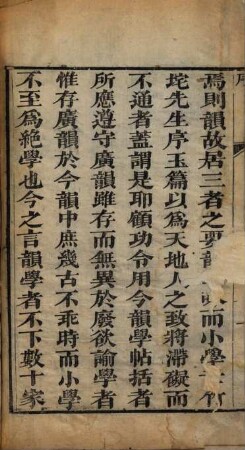 焉則韻故居三者之要韻而小學
垞先生序玉篇以為天地人之致將滯礙而
不通者蓋謂是耶顧功令用今韻學帖括者
所應遵守廣韻雖存而無異於廢欲諭學者
惟存廣韻於今韻中庶幾古不乖時而小學
不至為絕學也今之言韻學者不下數十家